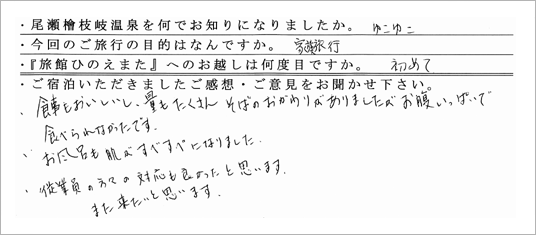 ・尾瀬檜枝岐温泉を何でお知りになりましたか。 ゆこゆこ
・今回のご旅行の目的はなんですか。 家族旅行
・『旅館ひのえまた』へのお越しは何度目ですか。 初めて
・ご宿泊いただきましたご感想・ご意見をお聞かせ下さい。
・食事もおいしいし、量もたくさん そばのおかわりがありましたがお腹いっぱいで
食べられなかったです。
・お風呂も肌がすべすべになりました。
・従業員の方々の対応も良かったと思います。
また来たいと思います。